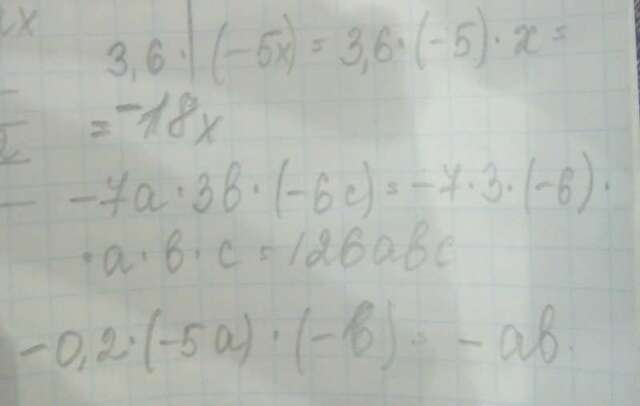 3,6 · (-5x) = 3,6 · (-5) · x =
= -18x
-7a · 3b · (-6c) = -7 · 3 · (-6) ·
· a · b · c = 126abc
-0,2 · (-5a) · (-b) = -ab.